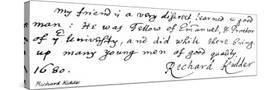 my friend is a very discreet learned & good
man: He was Fellow of Emanuel, & Proctor
of yͤ University, and did while there bring
up many young men of good quality.
Richard Kidder
1680.
Richard Kidder